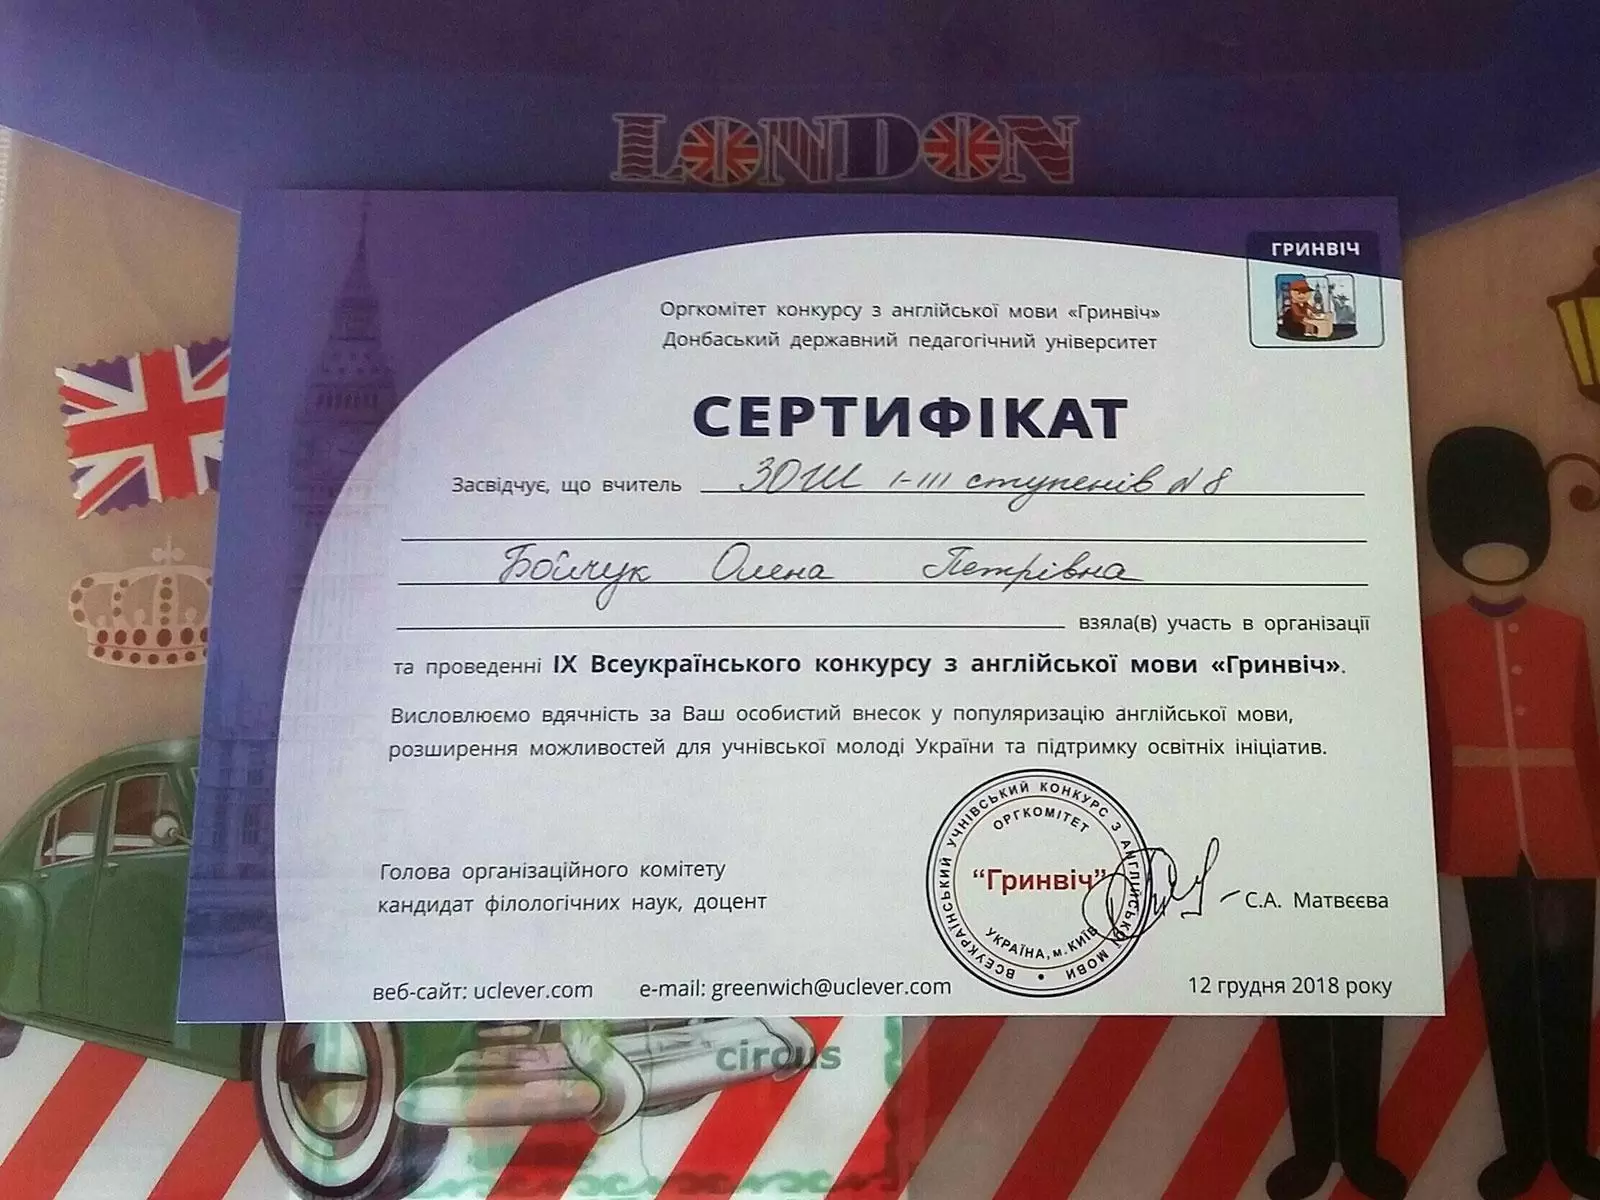 LONDON
ГРИНВІЧ
Оргкомітет конкурсу з англійської мови «Гринвіч»
Донбаський державний педагогічний університет
СЕРТИФІКАТ
Засвідчує, що вчитель ЗОШ І-ІІІ ступенів №8
Бойчук Олена Петрівна
взяла(в) участь в організації
та проведенні ІХ Всеукраїнського конкурсу з англійської мови «Гринвіч».
Висловлюємо вдячність за Ваш особистий внесок у популяризацію англійської мови,
розширення можливостей для учнівської молоді України та підтримку освітніх ініціатив.
ВСЕУКРАЇНСЬКИЙ УЧНІВСЬКИЙ КОНКУРС З АНГЛІЙСЬКОЇ МОВИ
ОРГКОМІТЕТ
"Гринвіч"
УКРАЇНА, м. КИЇВ
Голова організаційного комітету
кандидат філологічних наук, доцент С.А. Матвєєва
веб-сайт: uclever.com e-mail: greenwich@uclever.com 12 грудня 2018 року
circus